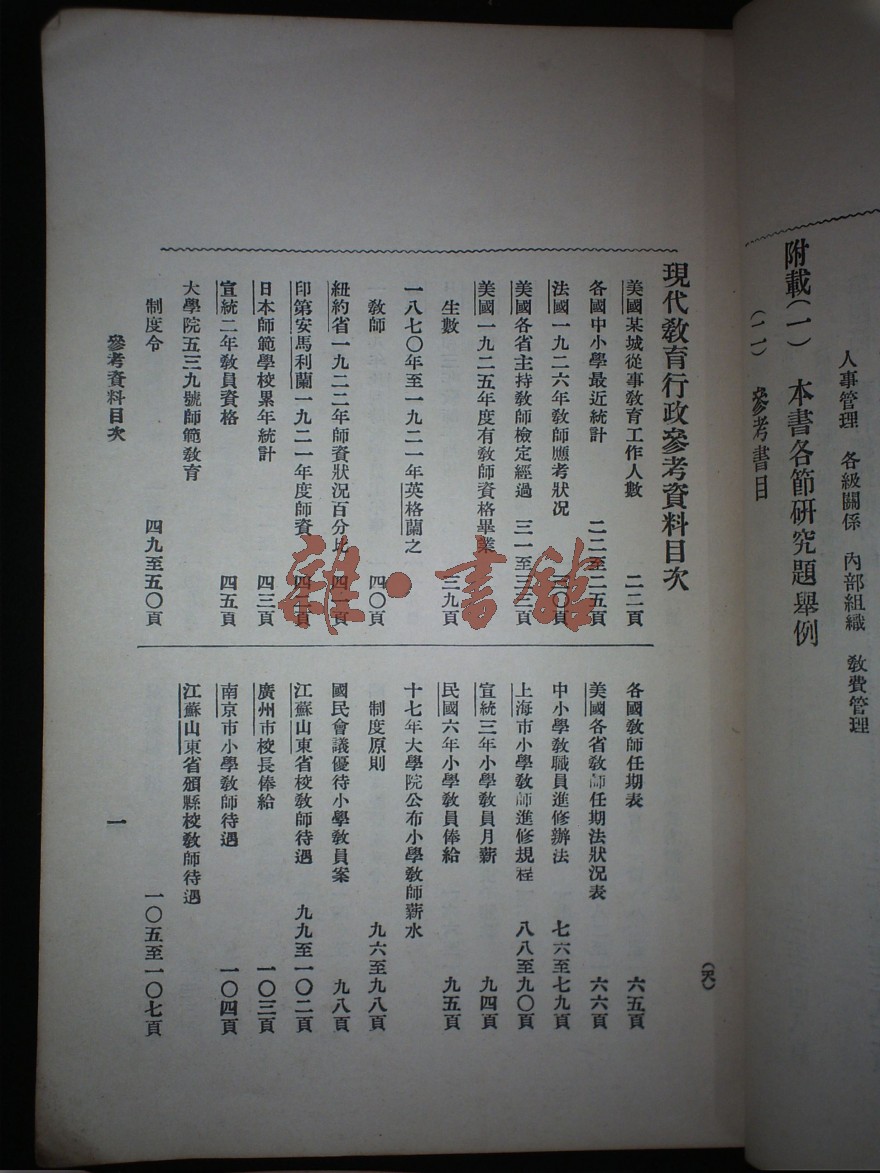 人事管理　各級關係　內部組織　教費管理
附載(一)　本書各節研究題舉例
(二)　參考書目
現代教育行政參考資料目次
美國某城從事教育工作人數　二二頁
各國中小學最近統計　二二至二五頁
法國一九二六年教師應考狀況　三〇頁
美國各省主持教師檢定經過　三一至三二頁
美國一九二五年度有教師資格畢業
生數　三九頁
一八七〇年至一九二一年英格蘭之
教師　四〇頁
紐約省一九二二年師資狀況百分比　四一頁
印第安馬利蘭一九二一年度師資　四二頁
日本師範學校累年統計　四三頁
宣統二年教員資格　四五頁
大學院五三九號師範教育
制度令　四九至五〇頁
各國教師任期表　六五頁
美國各省教師任期法狀況表　六六頁
中小學教職員進修辦法　七六至七九頁
上海市小學教師進修規程　八八至九〇頁
宣統三年小學教員月薪　九四頁
民國六年小學教員俸給　九五頁
十七年大學院公布小學教師薪水
制度原則　九六至九八頁
國民會議優待小學教員案　九八頁
江蘇山東省校教師待遇　九九至一〇二頁
廣州市校長俸給　一〇三頁
南京市小學教師待遇　一〇四頁
江蘇山東省頒縣校教師待遇　一〇五至一〇七頁
參考資料目次
一
雜·書館